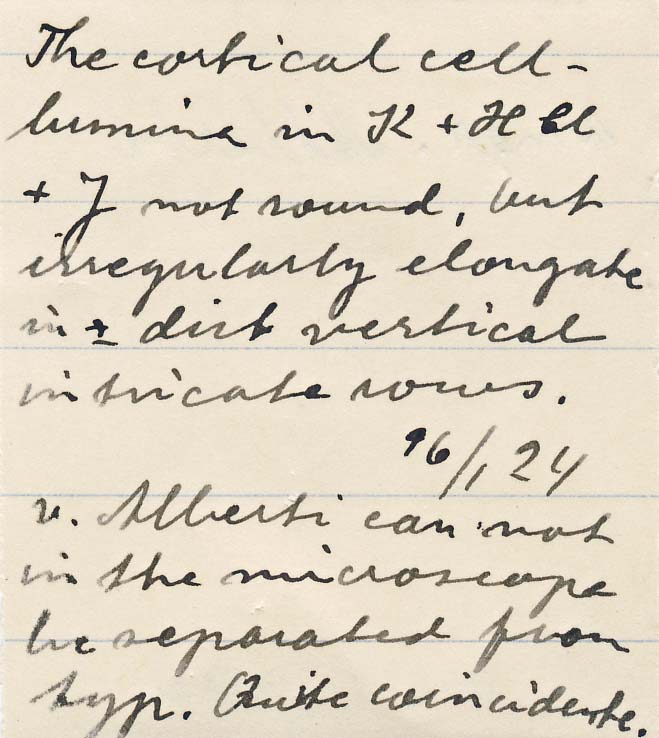 The cortical cell-
lumina in K + HCl
+ J not round, but
irregularly elongate
in ± dist vertical
intricate rows.
16/1 24
v. Alberti can not
in the microscope
be separated from
typ. Quite coincidente.